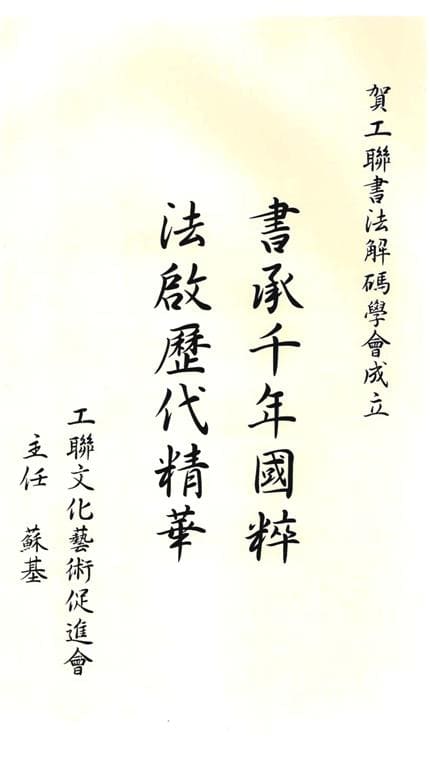 賀工聯書法解碼學會成立
書承千年國粹
法啟歷代精華
工聯文化藝術促進會
主任 蘇基